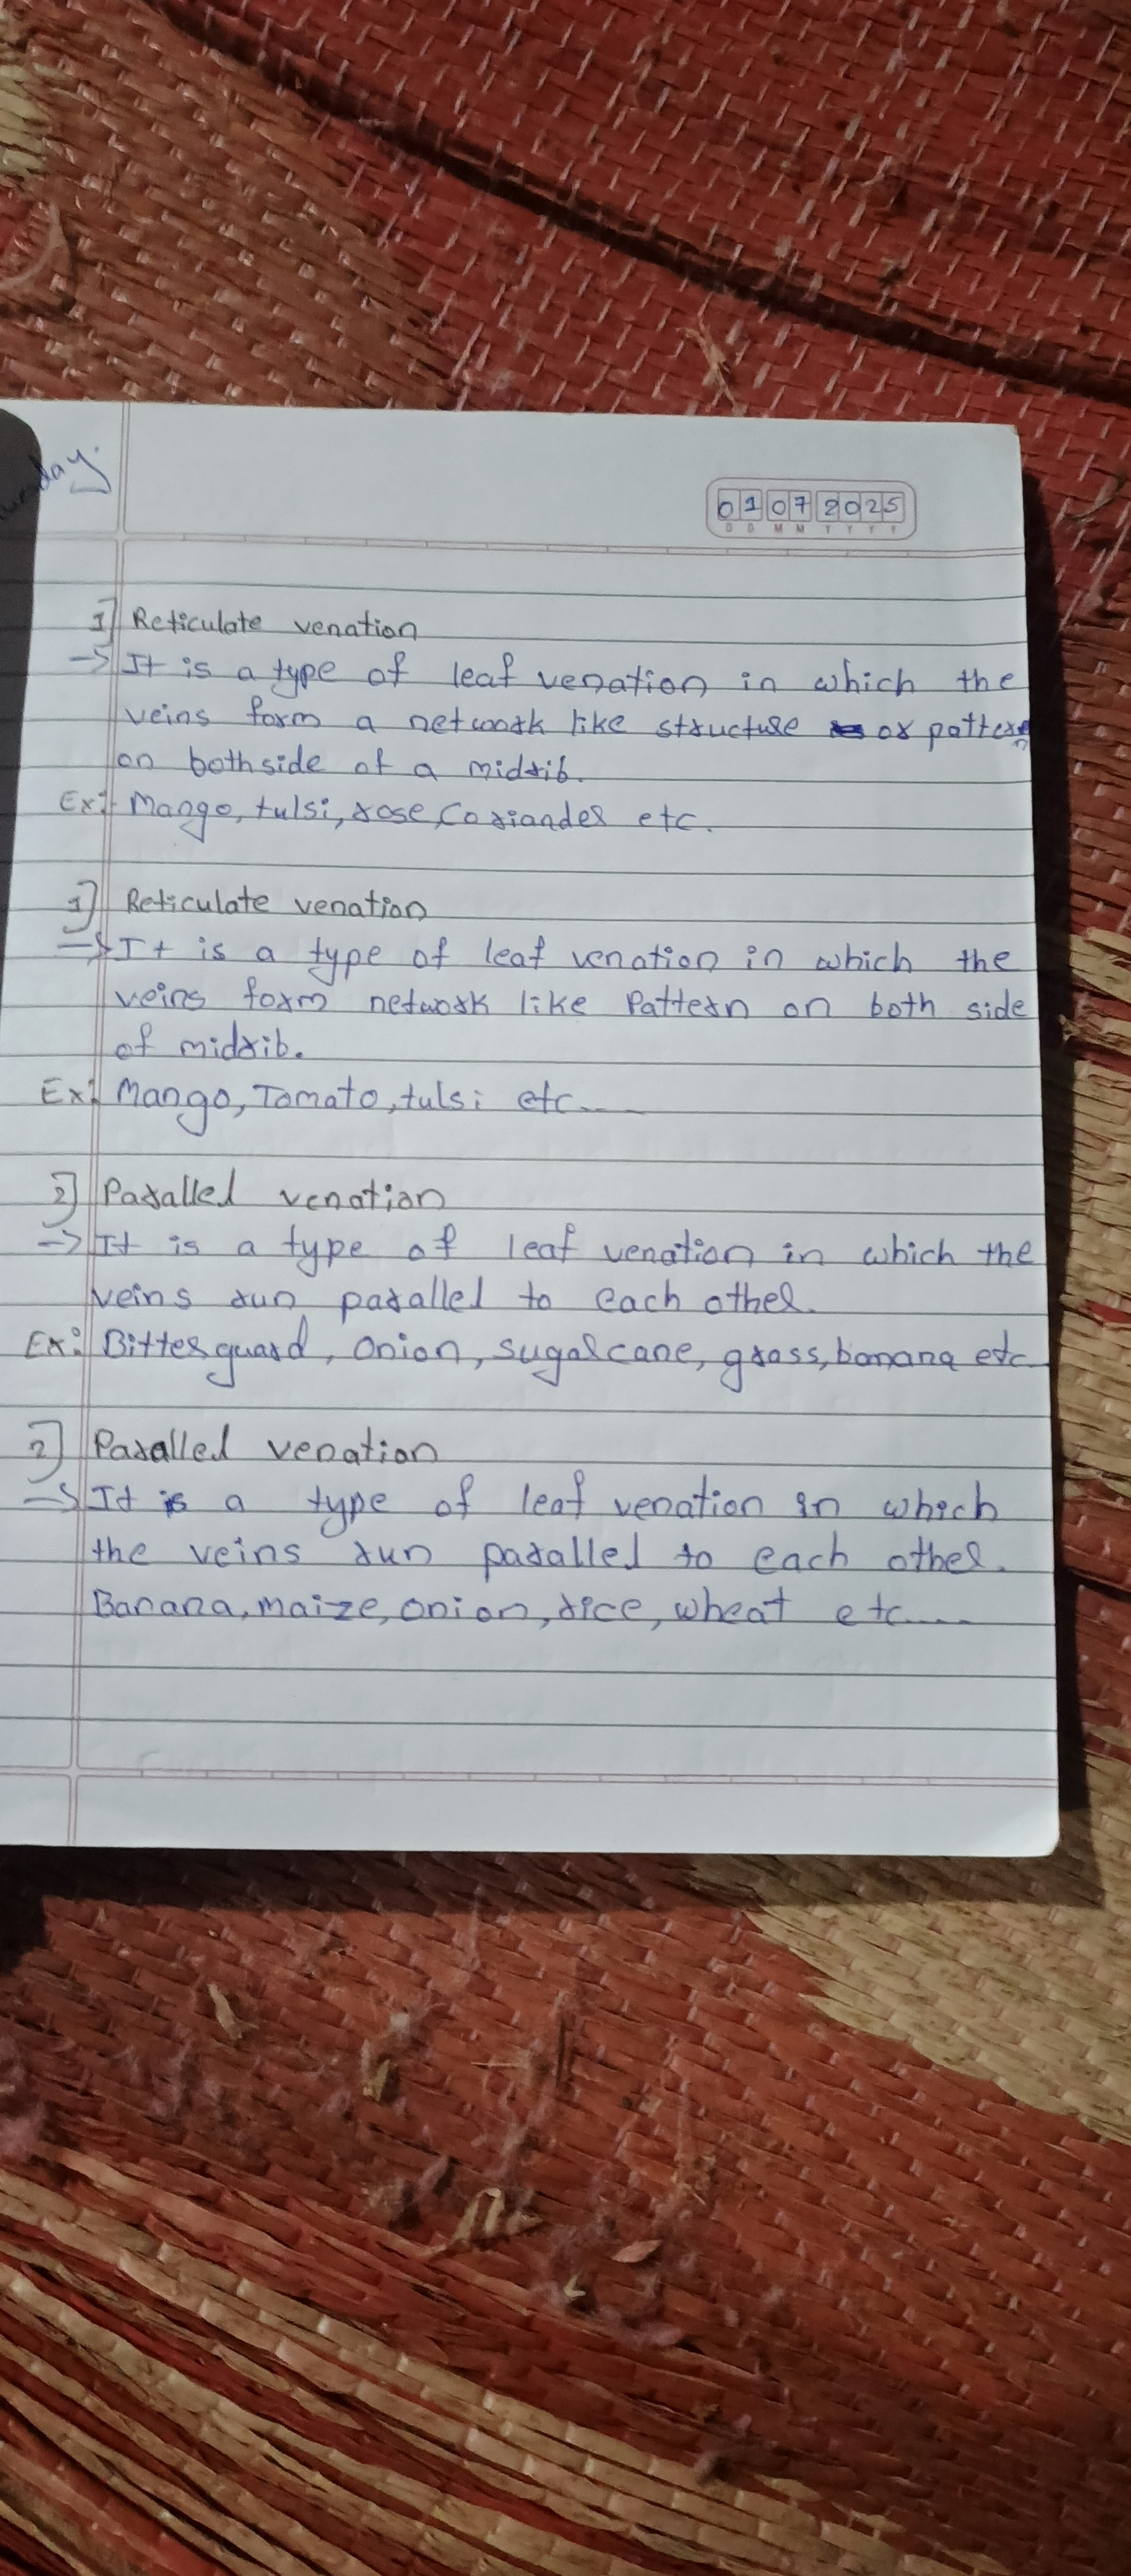 01 07 2025
D D M M Y Y Y Y
1] Reticulate venation
→ It is a type of leaf venation in which the
veins form a network like structure or pattern
on bothside of a midrib.
Ex:- Mango, tulsi, rose, Coriander etc.
1] Reticulate venation
→ It is a type of leaf venation in which the
veins form network like Pattern on both side
of midrib.
Ex: Mango, Tomato, tulsi etc....
2] Paralled venation
→ It is a type of leaf venation in which the
veins run paralled to each other.
Ex: Bitter guard, onion, sugarcane, grass, banana etc
2] Paralled venation
→ It is a type of leaf venation in which
the veins run paralled to each other.
Banana, maize, onion, rice, wheat etc....